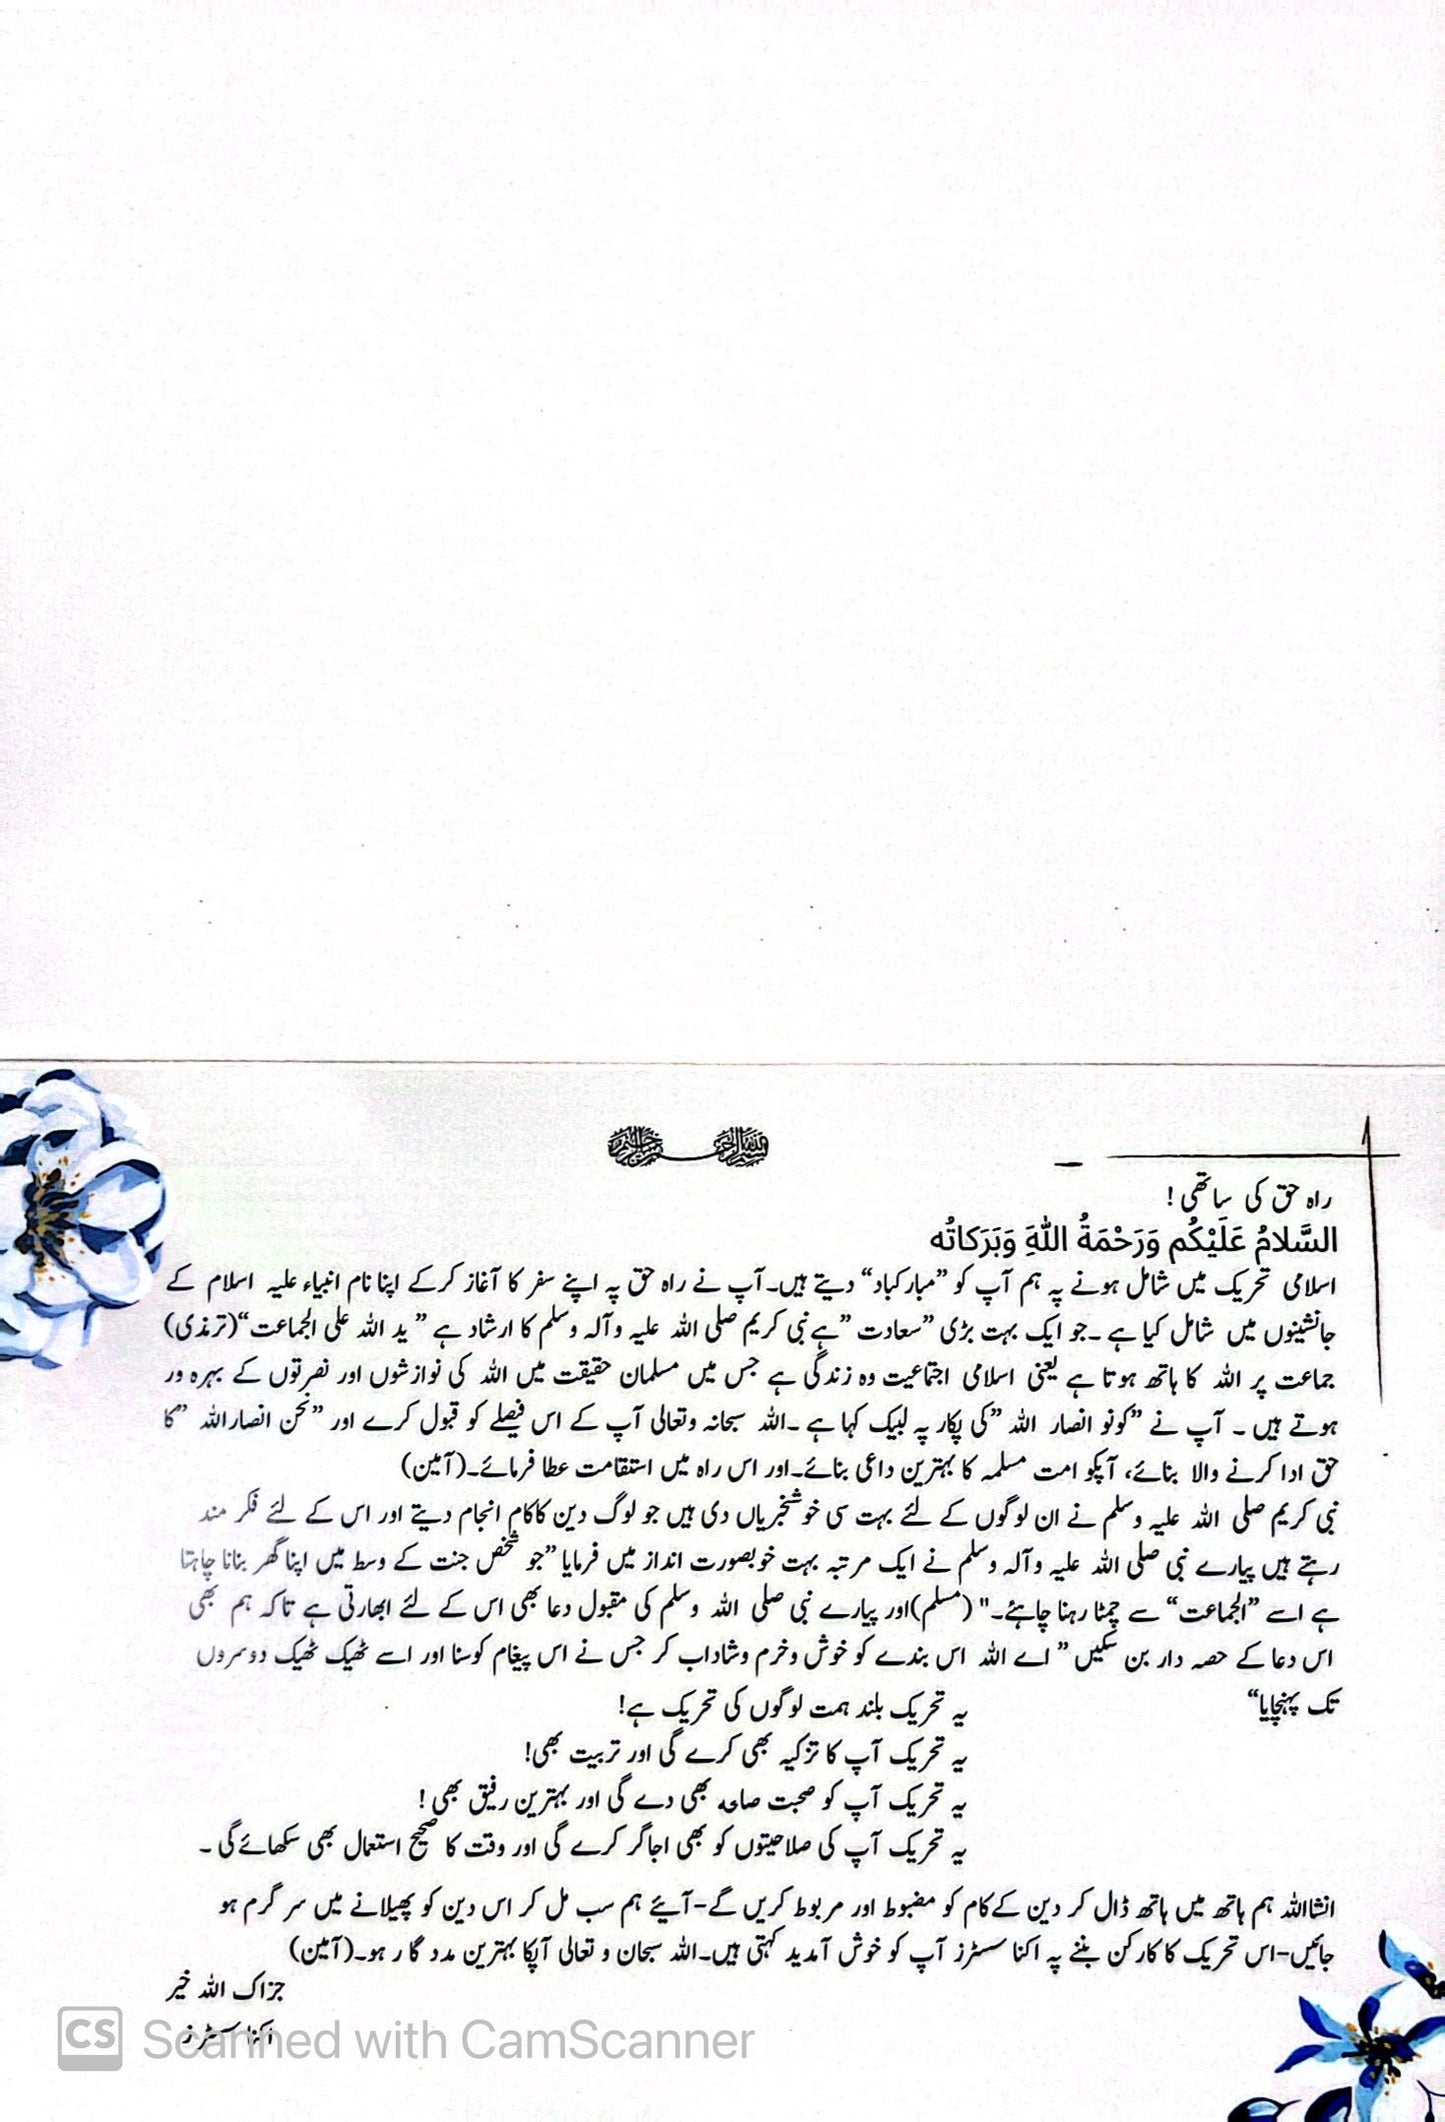 بسم اللہ الرحمن الرحیم
راہ حق کی ساتھی !
السَّلامُ عَلَيْكُم وَرَحْمَةُ اللّٰهَ وَبَرَكاتُه
اسلامی تحریک میں شامل ہونے پہ ہم آپ کو ”مبارکباد“ دیتے ہیں۔آپ نے راہ حق پہ اپنے سفر کا آغاز کرکے اپنا نام انبیاء علیہ اسلام کے
جانشینوں میں شامل کیا ہے ۔جو ایک بہت بڑی ”سعادت ”ہےنبی کریم صلی اللہ علیہ وآلہ وسلم کا ارشاد ہے ” ید اللہ علی الجماعت“(ترمذی)
جماعت پر اللہ کا ہاتھ ہوتا ہے یعنی اسلامی اجتماعیت وہ زندگی ہے جس میں مسلمان حقیقت میں اللہ کی نوازشوں اور نصرتوں کے بہرہ ور
ہوتے ہیں ۔ آپ نے ”کونو انصار اللہ ”کی پکار پہ لبیک کہا ہے ۔اللہ سبحانہ وتعالی آپ کے اس فیصلے کو قبول کرے اور ”نحن انصاراللہ ”کا
حق ادا کرنے والا بنائے، آپکو امت مسلمہ کا بہترین داعی بنائے۔اور اس راہ میں استقامت عطا فرمائے۔(آمین)
نبی کریم صلی اللہ علیہ وسلم نے ان لوگوں کے لئے بہت سی خوشخبریاں دی ہیں جو لوگ دین کاکام انجام دیتے اور اس کے لئے فکر مند
رہتے ہیں پیارے نبی صلی اللہ علیہ وآلہ وسلم نے ایک مرتبہ بہت خوبصورت انداز میں فرمایا ”جو شخص جنت کے وسط میں اپنا گھر بنانا چاہتا
ہے اسے ”الجماعت“ سے چمٹا رہنا چاہئے۔" (مسلم)اور پیارے نبی صلی اللہ وسلم کی مقبول دعا بھی اس کے لئے ابھارتی ہے تاکہ ہم بھی
اس دعا کے حصہ دار بن سکیں ” اے اللہ اس بندے کو خوش وخرم وشاداب کر جس نے اس پیغام کوسنا اور اسے ٹھیک ٹھیک دوسروں
تک پہنچایا“
یہ تحریک بلند ہمت لوگوں کی تحریک ہے!
یہ تحریک آپ کا تزکیہ بھی کرے گی اور تربیت بھی!
یہ تحریک آپ کو صحبت صالحہ بھی دے گی اور بہترین رفیق بھی !
یہ تحریک آپ کی صلاحیتوں کو بھی اجاگر کرے گی اور وقت کا صحیح استعمال بھی سکھائے گی ۔
انشااللہ ہم ہاتھ میں ہاتھ ڈال کر دین کےکام کو مضبوط اور مربوط کریں گے-آیئے ہم سب مل کر اس دین کو پھیلانے میں سر گرم ہو
جائیں-اس تحریک کا کارکن بننے پہ اکنا سسٹرز آپ کو خوش آمدید کہتی ہیں۔اللہ سبحان و تعالی آپکا بہترین مدد گار ہو۔(آمین)
جزاک اللہ خیر
اکنا سسٹرز
CS Scanned with CamScanner